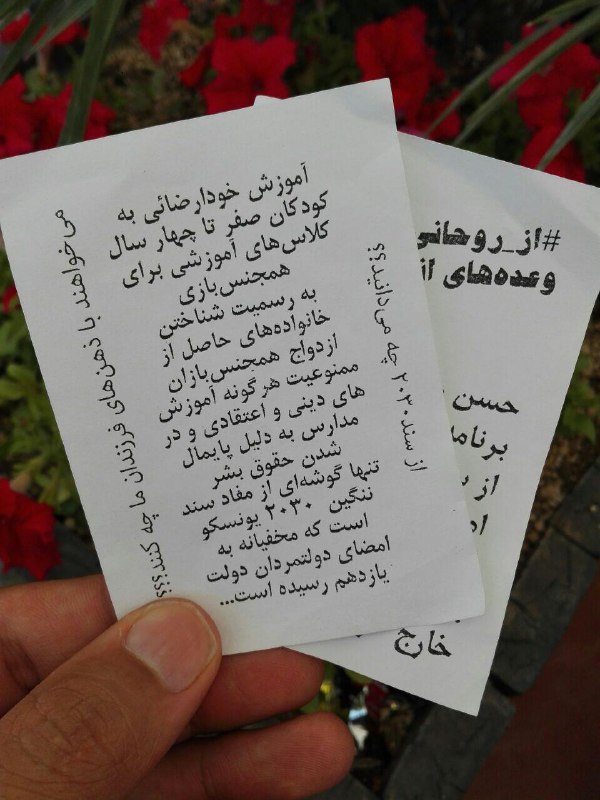 از سند ۲۰۳۰ چه می‌دانید؟؟
آموزش خودارضائی به
کودکان صفر تا چهار سال
کلاس‌های آموزشی برای
همجنس‌بازی
به رسمیت شناختن
خانواده‌های حاصل از
ازدواج همجنس‌بازان
ممنوعیت هرگونه آموزش
های دینی و اعتقادی و در
مدارس به دلیل پایمال
شدن حقوق بشر
تنها گوشه‌ای از مفاد سند
ننگین ۲۰۳۰ یونسکو
است که مخفیانه به
امضای دولتمردان دولت
یازدهم رسیده است...
می‌خواهند با ذهن‌های فرزندان ما چه کنند؟؟؟
#از_روحانی
وعده‌های
حسن
خارج